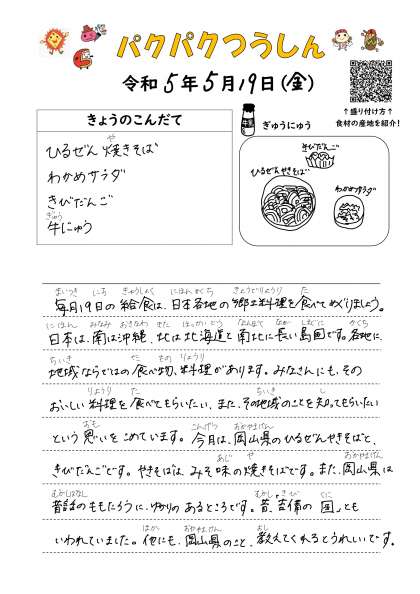 パクパクつうしん
令和5年5月19日(金)
↑盛り付け方↑
食材の産地を紹介!
きょうのこんだて
ひるぜん焼きそば
わかめサラダ
きびだんご
牛にゅう
ぎゅうにゅう
きびだんご
ひるぜんやきそば
わかめサラダ
毎月19日の給食は、日本各地の郷土料理を食べてめぐりましょう。
日本は、南は沖縄、北は北海道と南北に長い島国です。各地に、
地域ならではの食べ物、料理があります。みなさんにも、その
おいしい料理を食べてもらいたい、また、その地域のことを知ってもらいたい
という思いをこめています。今月は、岡山県のひるぜんやきそばと、
きびだんごです。やきそばは、みそ味の焼きそばです。また、岡山県は
昔話のももたろうに、ゆかりのあるところです。昔、吉備の国とも
いわれていました。他にも、岡山県のこと、教えてくれるとうれしいです。